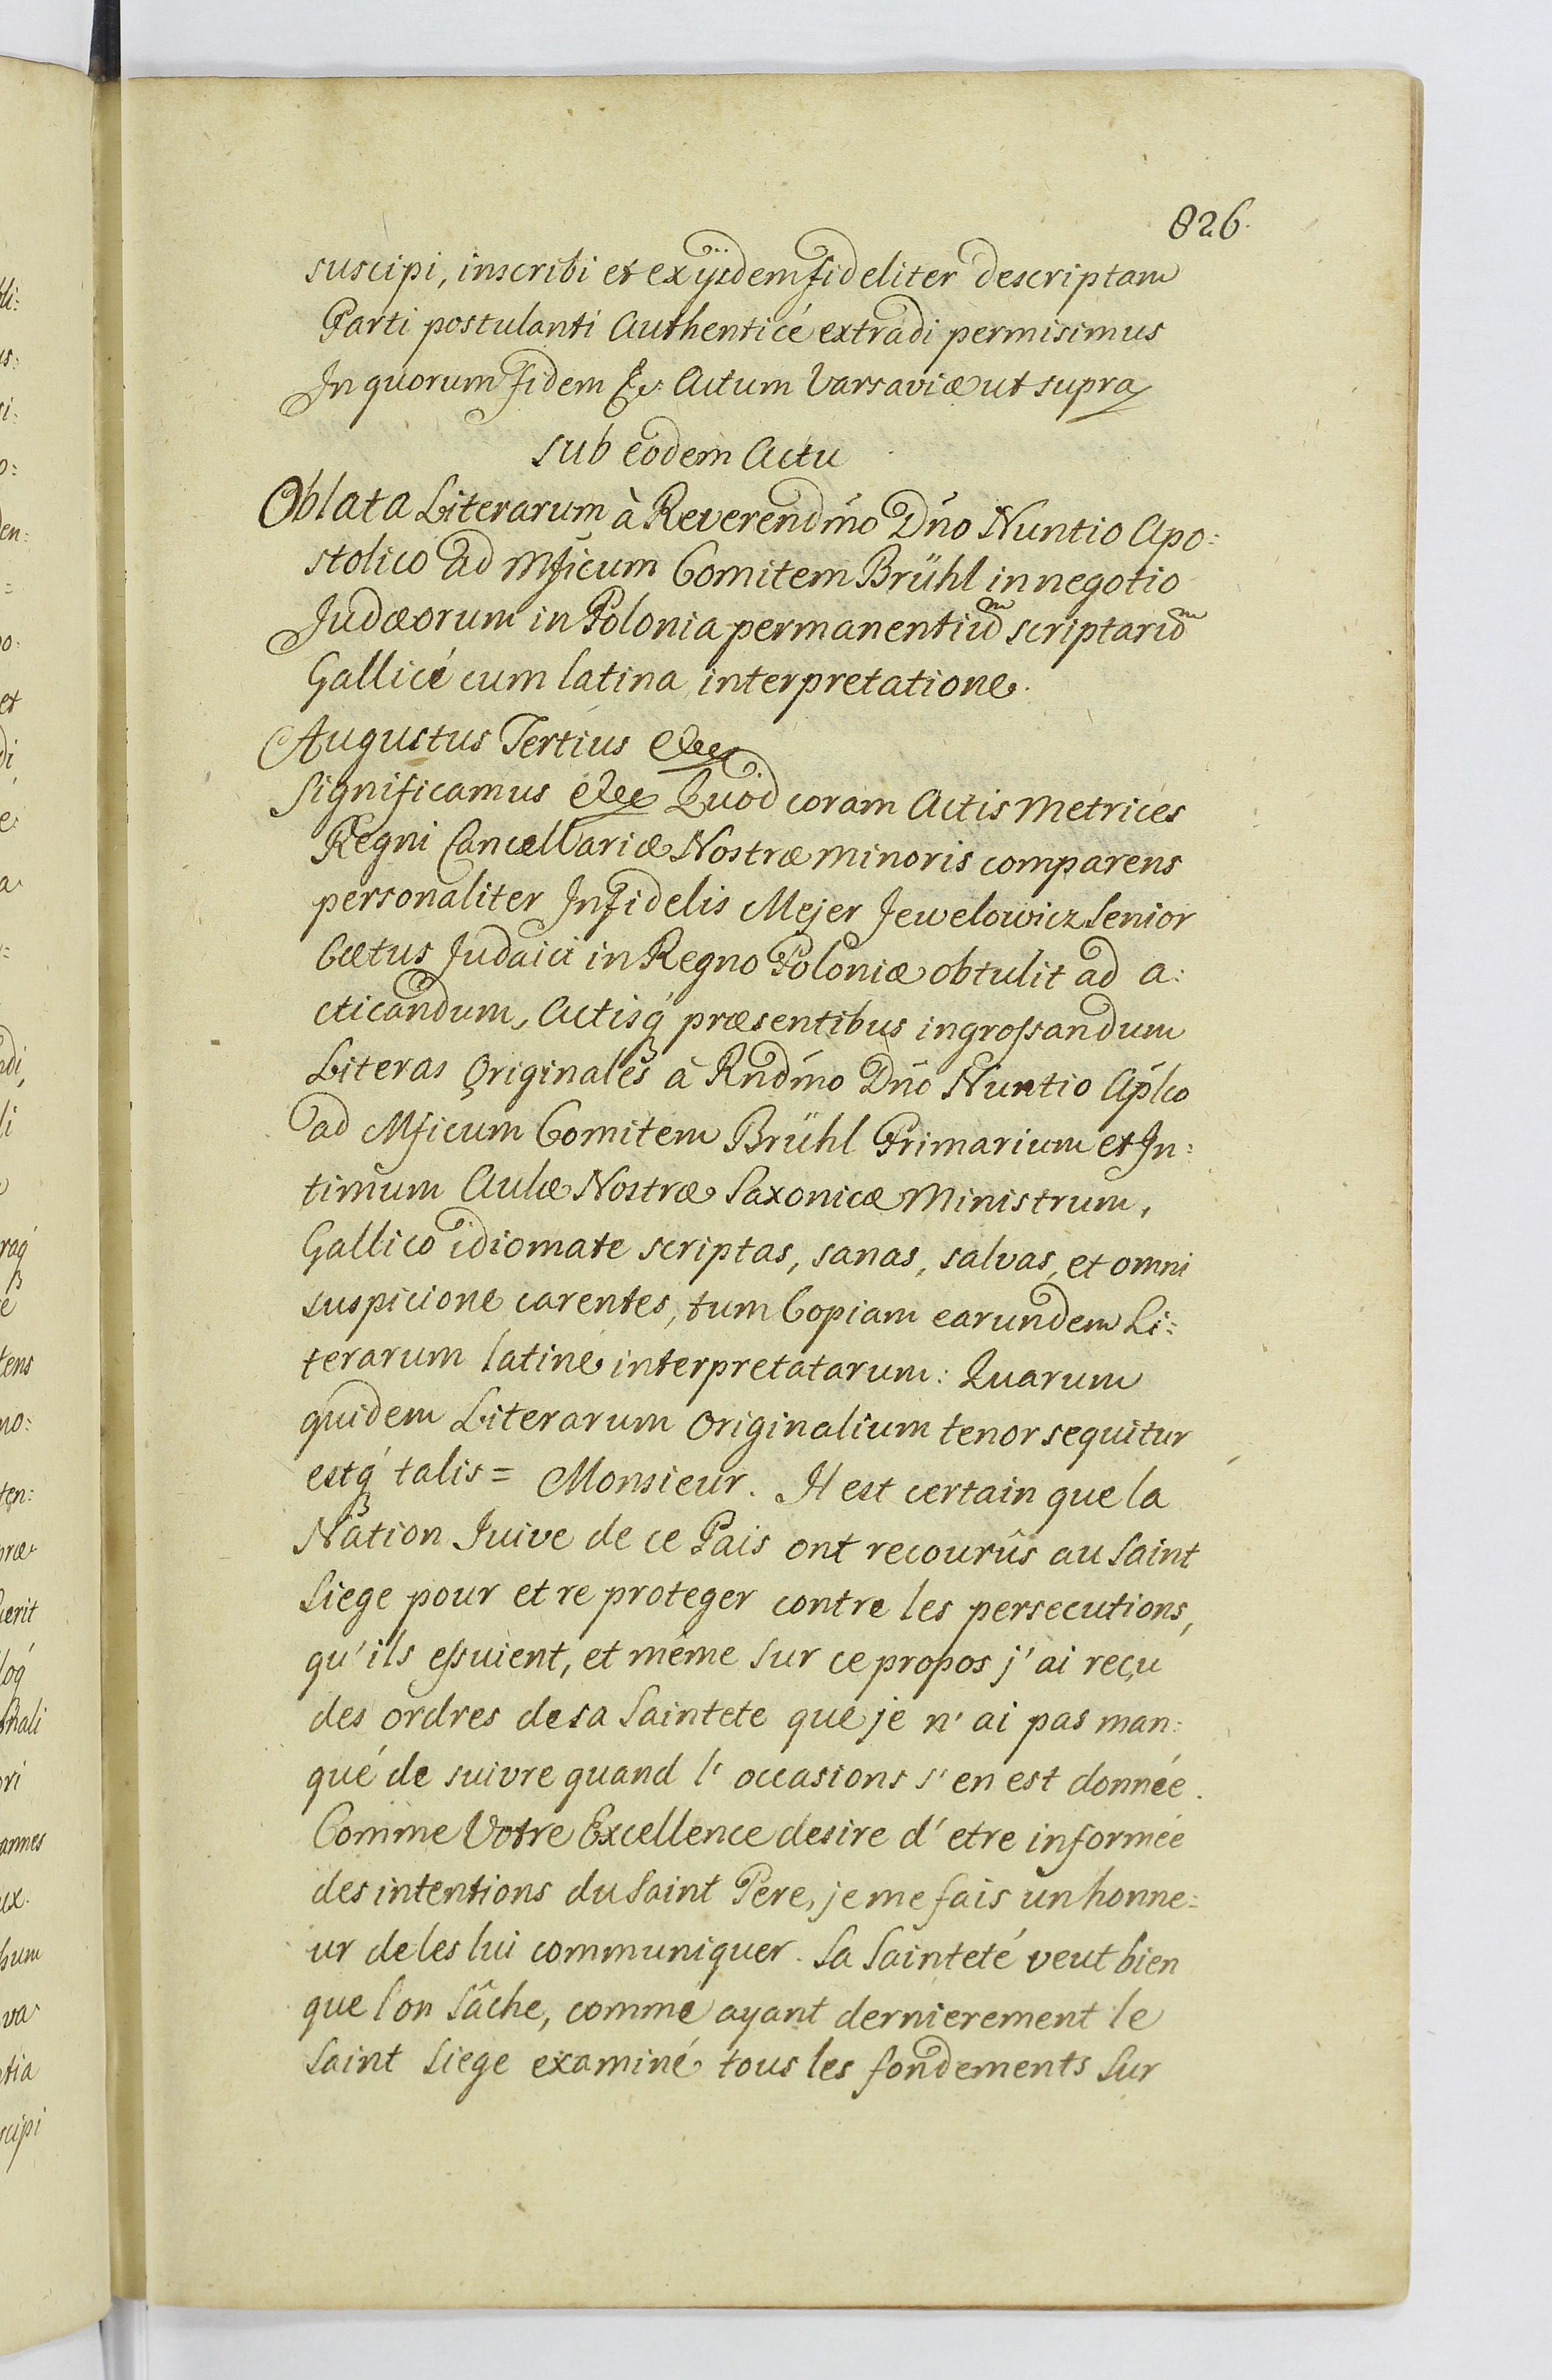 826.
suscipi, inscribi et ex ÿsdem fideliter descriptam
Parti postulanti Authenticé extradi permisimus
In quorum fidem &c. Actum Varsaviæ ut supra
sub eodem Actu
Oblata Literarum à Reverendmo Dno Nuntio Apo:
stolico ad Mficum Comitem Brühl in negotio
Judæorum in Polonia permanentium scriptarum
Gallicé cum latina interpretatione.
Augustus Tertius &c
Significamus &c Quod coram Actis Metrices
Regni Cancellariæ Nostræ minoris comparens
personaliter Infidelis Mejer Jewelowicz Senior
Cætus Judaici in Regno Poloniæ obtulit ad a:
cticandum, Actisq præsentibus ingrossandum
Literas Originales à Rndmo Dno Nuntio Aplco
ad Mficum Comitem Brühl Primarium et In:
timum Aulæ Nostræ Saxonicæ Ministrum,
Gallico idiomate scriptas, sanas, salvas, et omni
suspicione carentes, tum Copiam earundem Li:
terarum latiné interpretatarum: Quarum
quidem Literarum Originalium tenor sequitur
estq talis = Monsieur. Il est certain que la
Nation Juive de ce Pais ont recourûs au Saint
Siege pour etre proteger contre les persecutions,
qu'ils essuient, et méme sur ce propos j'ai reçu
des ordres de sa Saintete que je n'ai pas man:
qué de suivre quand l'occasions s'en est donnée.
Comme Votre Excellence desire d'etre informée
des intentions du Saint Pere, je me fais un honne:
ur de les lui communiquer. Sa Sainteté veut bien
que l'on sâche, comme ayant dernierement le
Saint Siege examiné tous les fondements sur